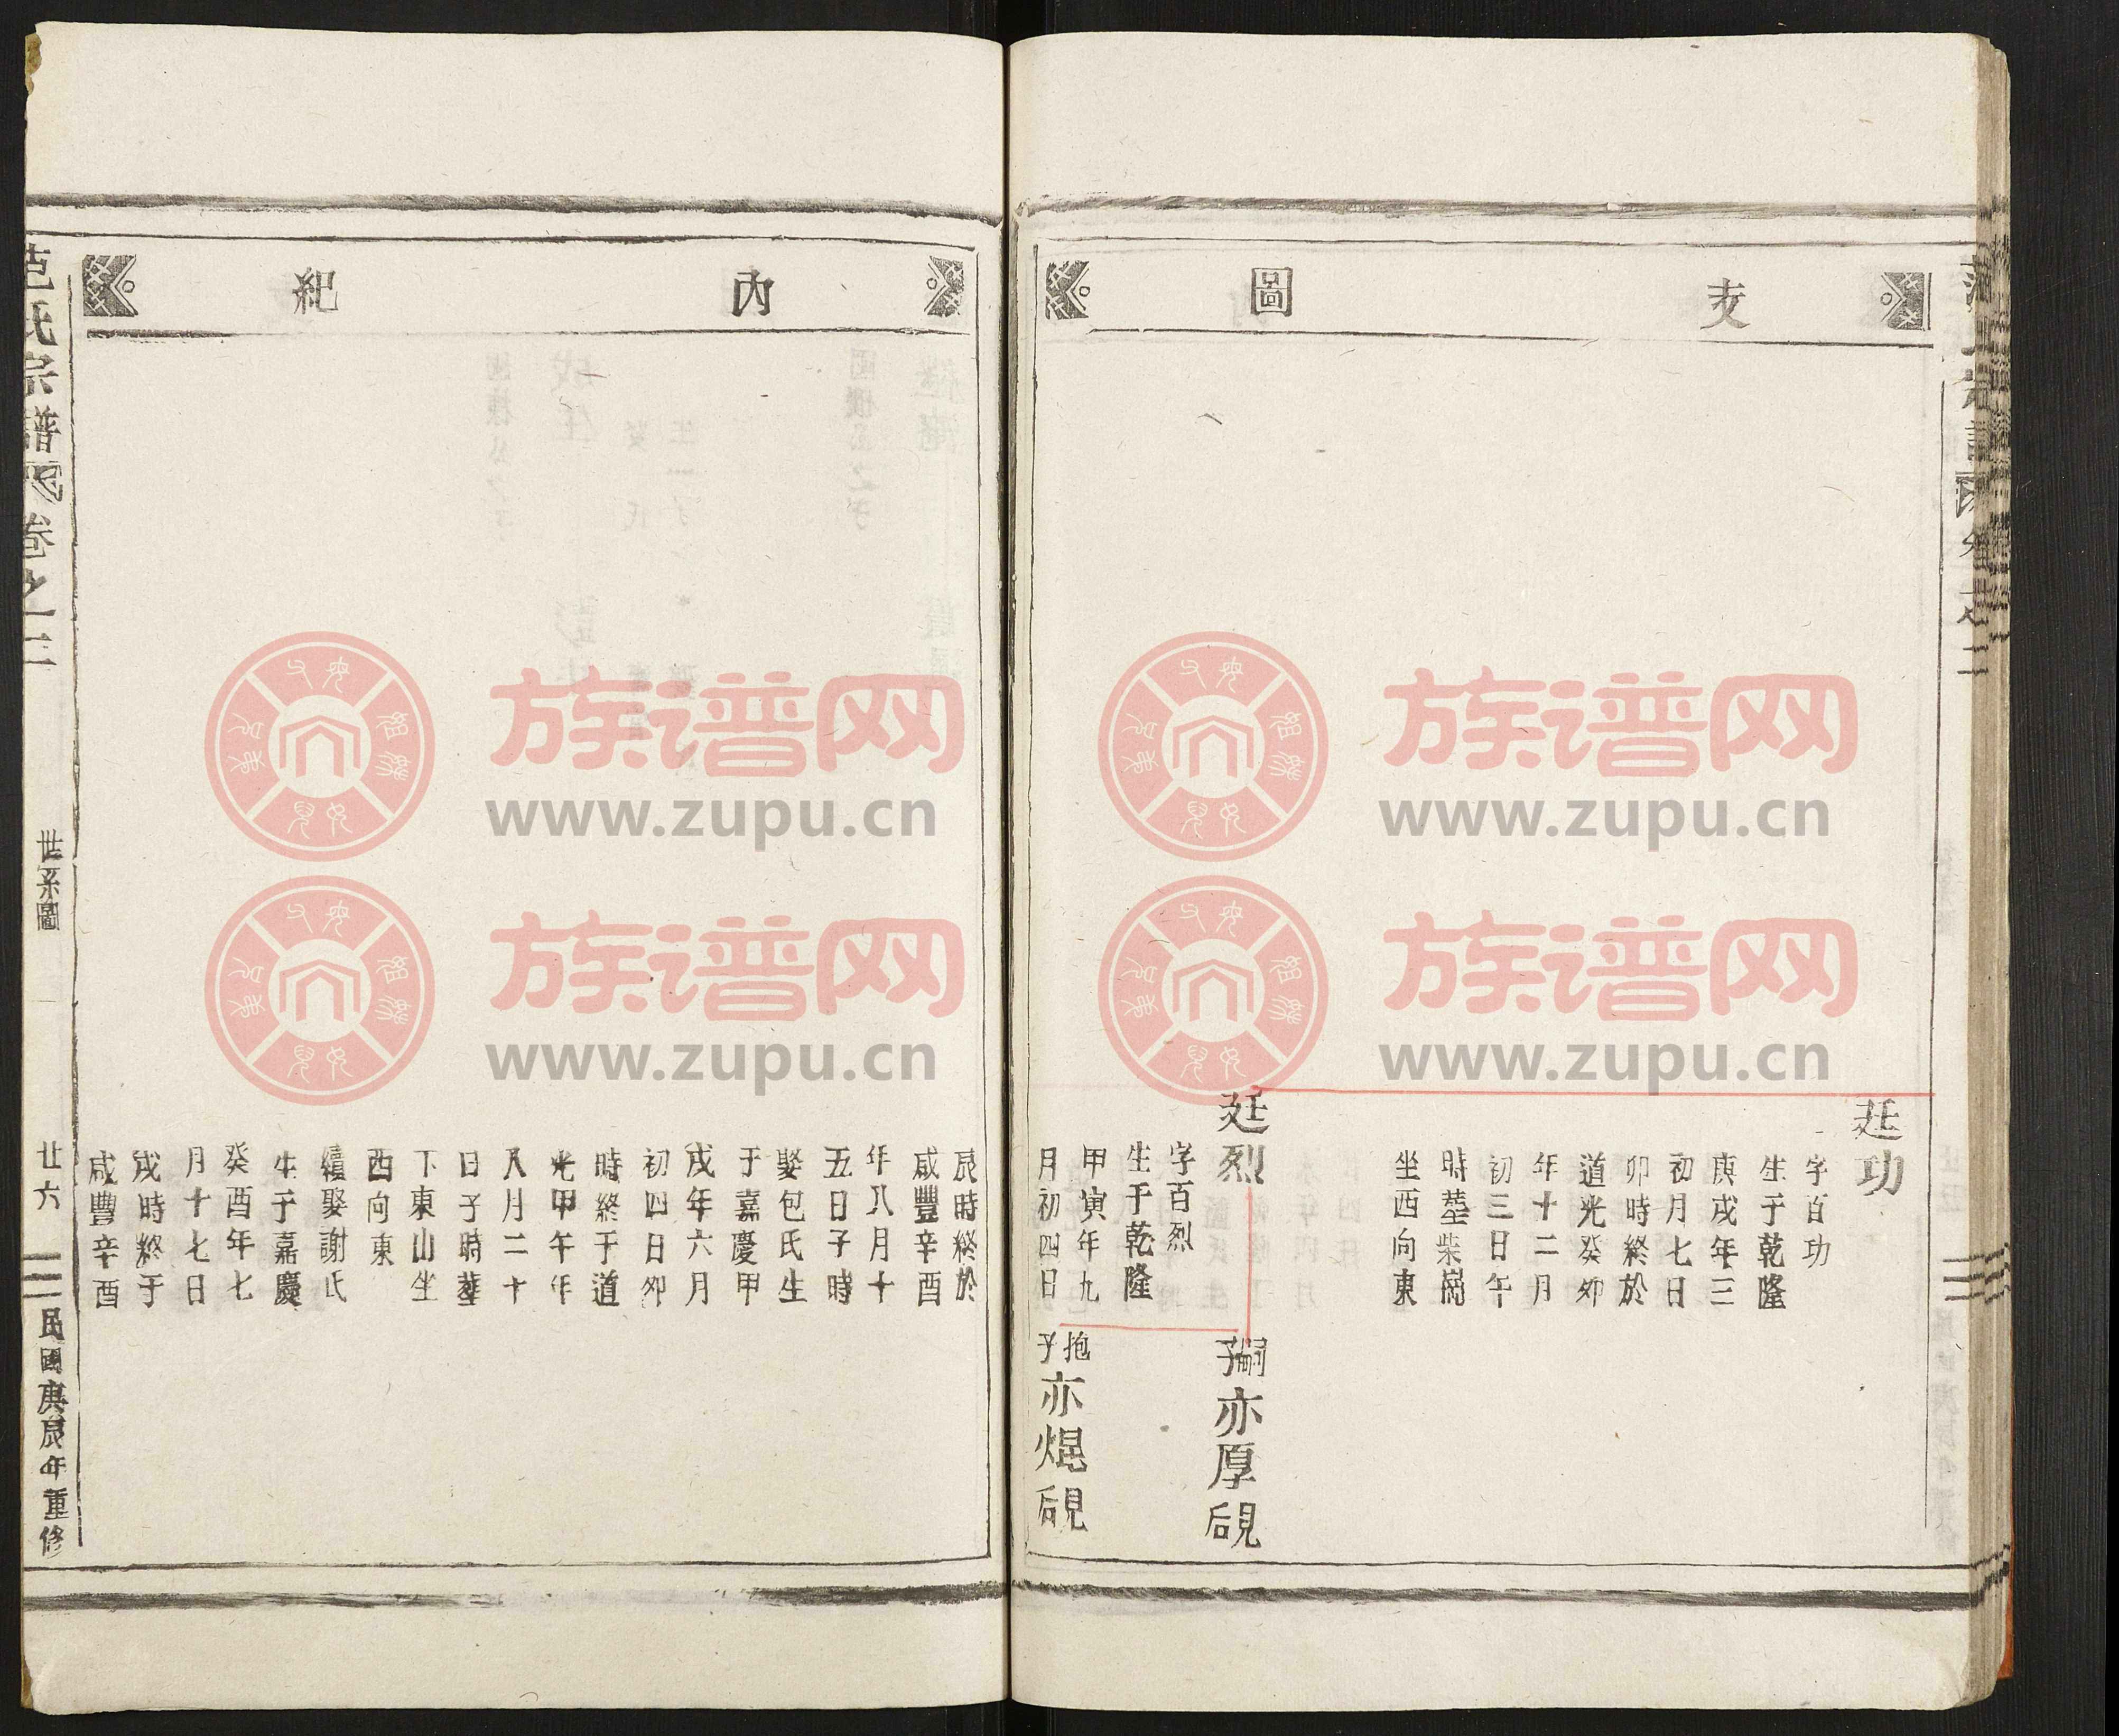 圖 支
廷功
字百功
生于乾隆
庚戌年三
初月七日
卯時終於
道光癸卯
年十二月
初三日午
時塟柴崗
坐西向東
廷烈
字百烈
生于乾隆
甲寅年九
月初四日
嗣子亦厚硯
抱子亦焜硯
紀 內
辰時終於
咸豐辛酉
年八月十
五日子時
娶包氏生
于嘉慶甲
戌年六月
初四日卯
時終于道
光甲午年
八月二十
日子時塟
下東山坐
西向東
續娶謝氏
生于嘉慶
癸酉年七
月十七日
戌時終于
咸豐辛酉
范氏宗譜
卷之三
世系圖
廿六
民國庚辰年重修
族谱网
www.zupu.cn
族谱网
www.zupu.cn
族谱网
www.zupu.cn
族谱网
www.zupu.cn